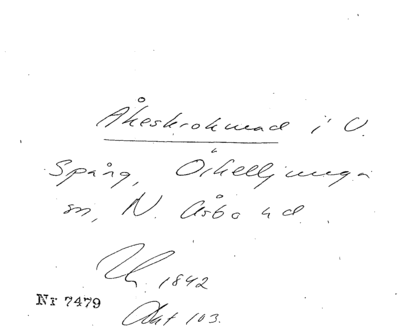 Åkeskrokmad i V.
Spång, Örkelljunga
sn, N. Åsbo hd.
1842
Nr 7479
Akt 103.